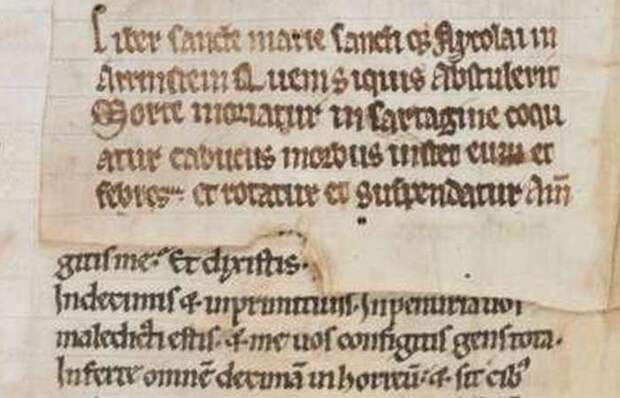 Liber sancte marie sancti qȝ Nycolai in
Arrinstein Quem siquis Abstulerit
Morte moriatur in sartagine coqu
atur caducus morbus instet eum et
febres et rotatur et suspendatur Am̅
gitis me. Et dixistis.
In decimis & in primitiuis. In penuria uos
maledicti estis. & me uos configitis gens tota.
Inferte omne̅ decima̅ in horreu̅. & sit cib᾽